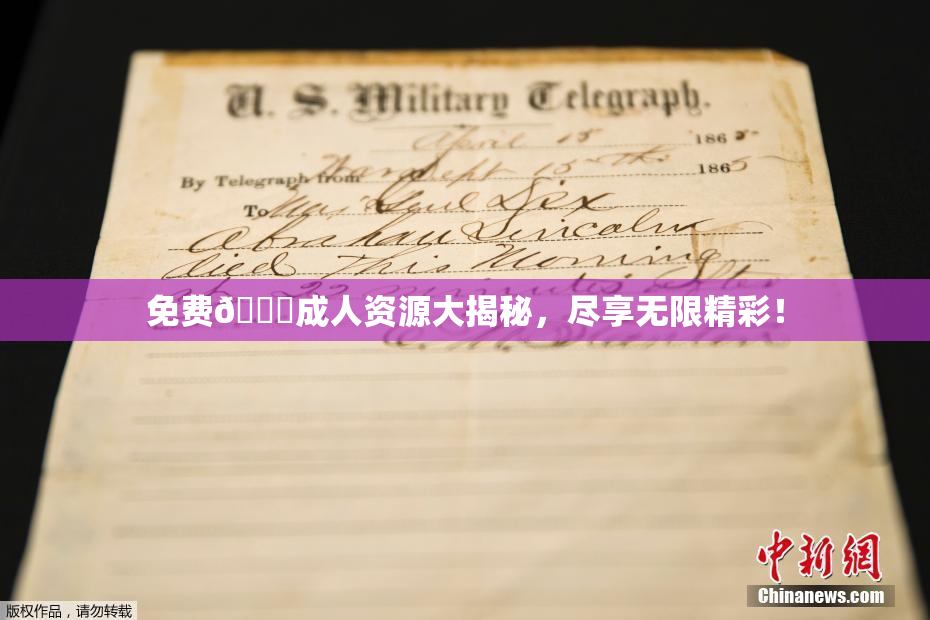 U. S. Military Telegraph.
April 15 1865
By Telegraph from War Dept 15th 1865
To Maj Genl Dix
Abraham Lincoln
died This Morning
at 22 minutes after
免费ð成人资源大揭秘，尽享无限精彩！
中新网
Chinanews.com
版权作品，请勿转载